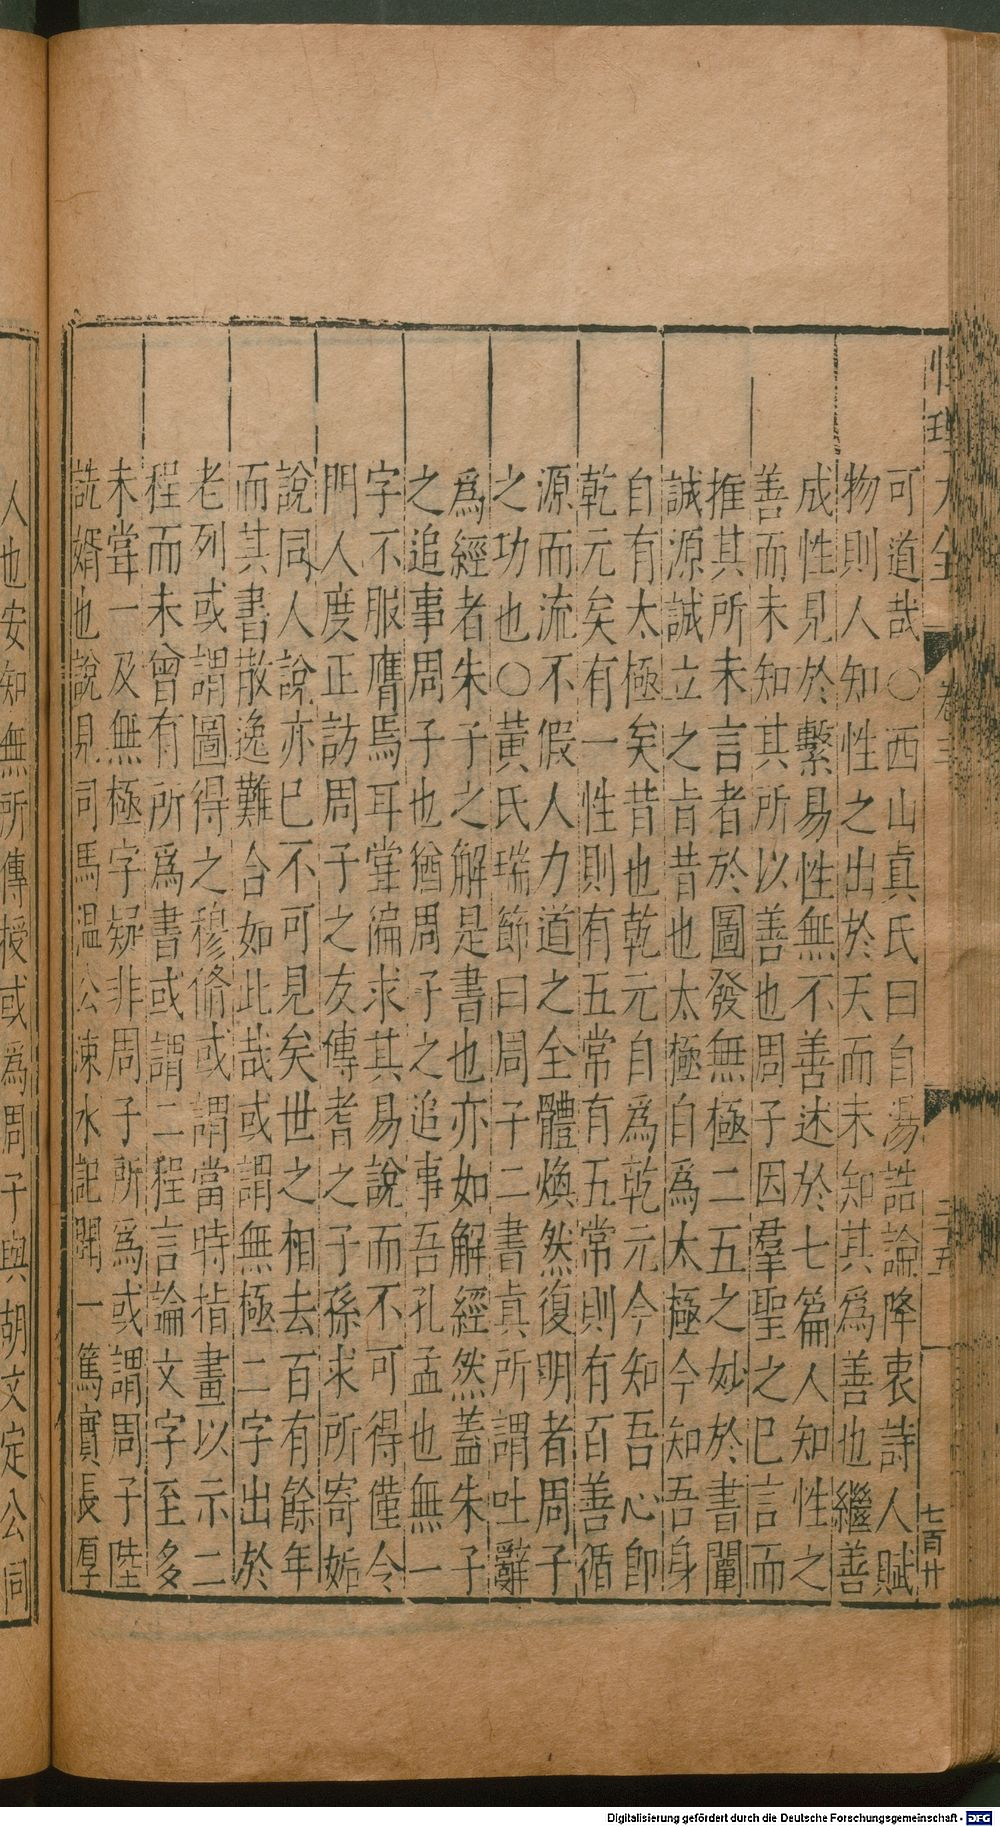 性理大全
卷三
三十五
七百廿
可道哉○西山眞氏曰自湯誥論降衷詩人賦
物則人知性之出於天而未知其爲善也繼善
成性見於繫易性無不善述於七篇人知性之
善而未知其所以善也周子因羣聖之已言而
推其所未言者於圖發無極二五之妙於書闡
誠源誠立之旨昔也太極自爲太極今知吾身
自有太極矣昔也乾元自爲乾元今知吾心卽
乾元矣有一性則有五常有五常則有百善循
源而流不假人力道之全體煥然復明者周子
之功也○黃氏瑞節曰周子二書眞所謂吐辭
爲經者朱子之解是書也亦如解經然蓋朱子
之追事周子也猶周子之追事吾孔孟也無一
字不服膺焉耳嘗徧求其易說而不可得僅令
門人度正訪周子之友傳耆之子孫求所寄姤
說同人說亦已不可見矣世之相去百有餘年
而其書散逸難合如此哉或謂無極二字出於
老列或謂圖得之穆脩或謂當時指畫以示二
程而未曾有所爲書或謂二程言論文字至多
未嘗一及無極字疑非周子所爲或謂周子陸
詵婿也說見司馬溫公涑水記聞一篤實長厚
人也安知無所傳授或爲周子與胡文定公同
Digitalisierung gefördert durch die Deutsche Forschungsgemeinschaft - DFG